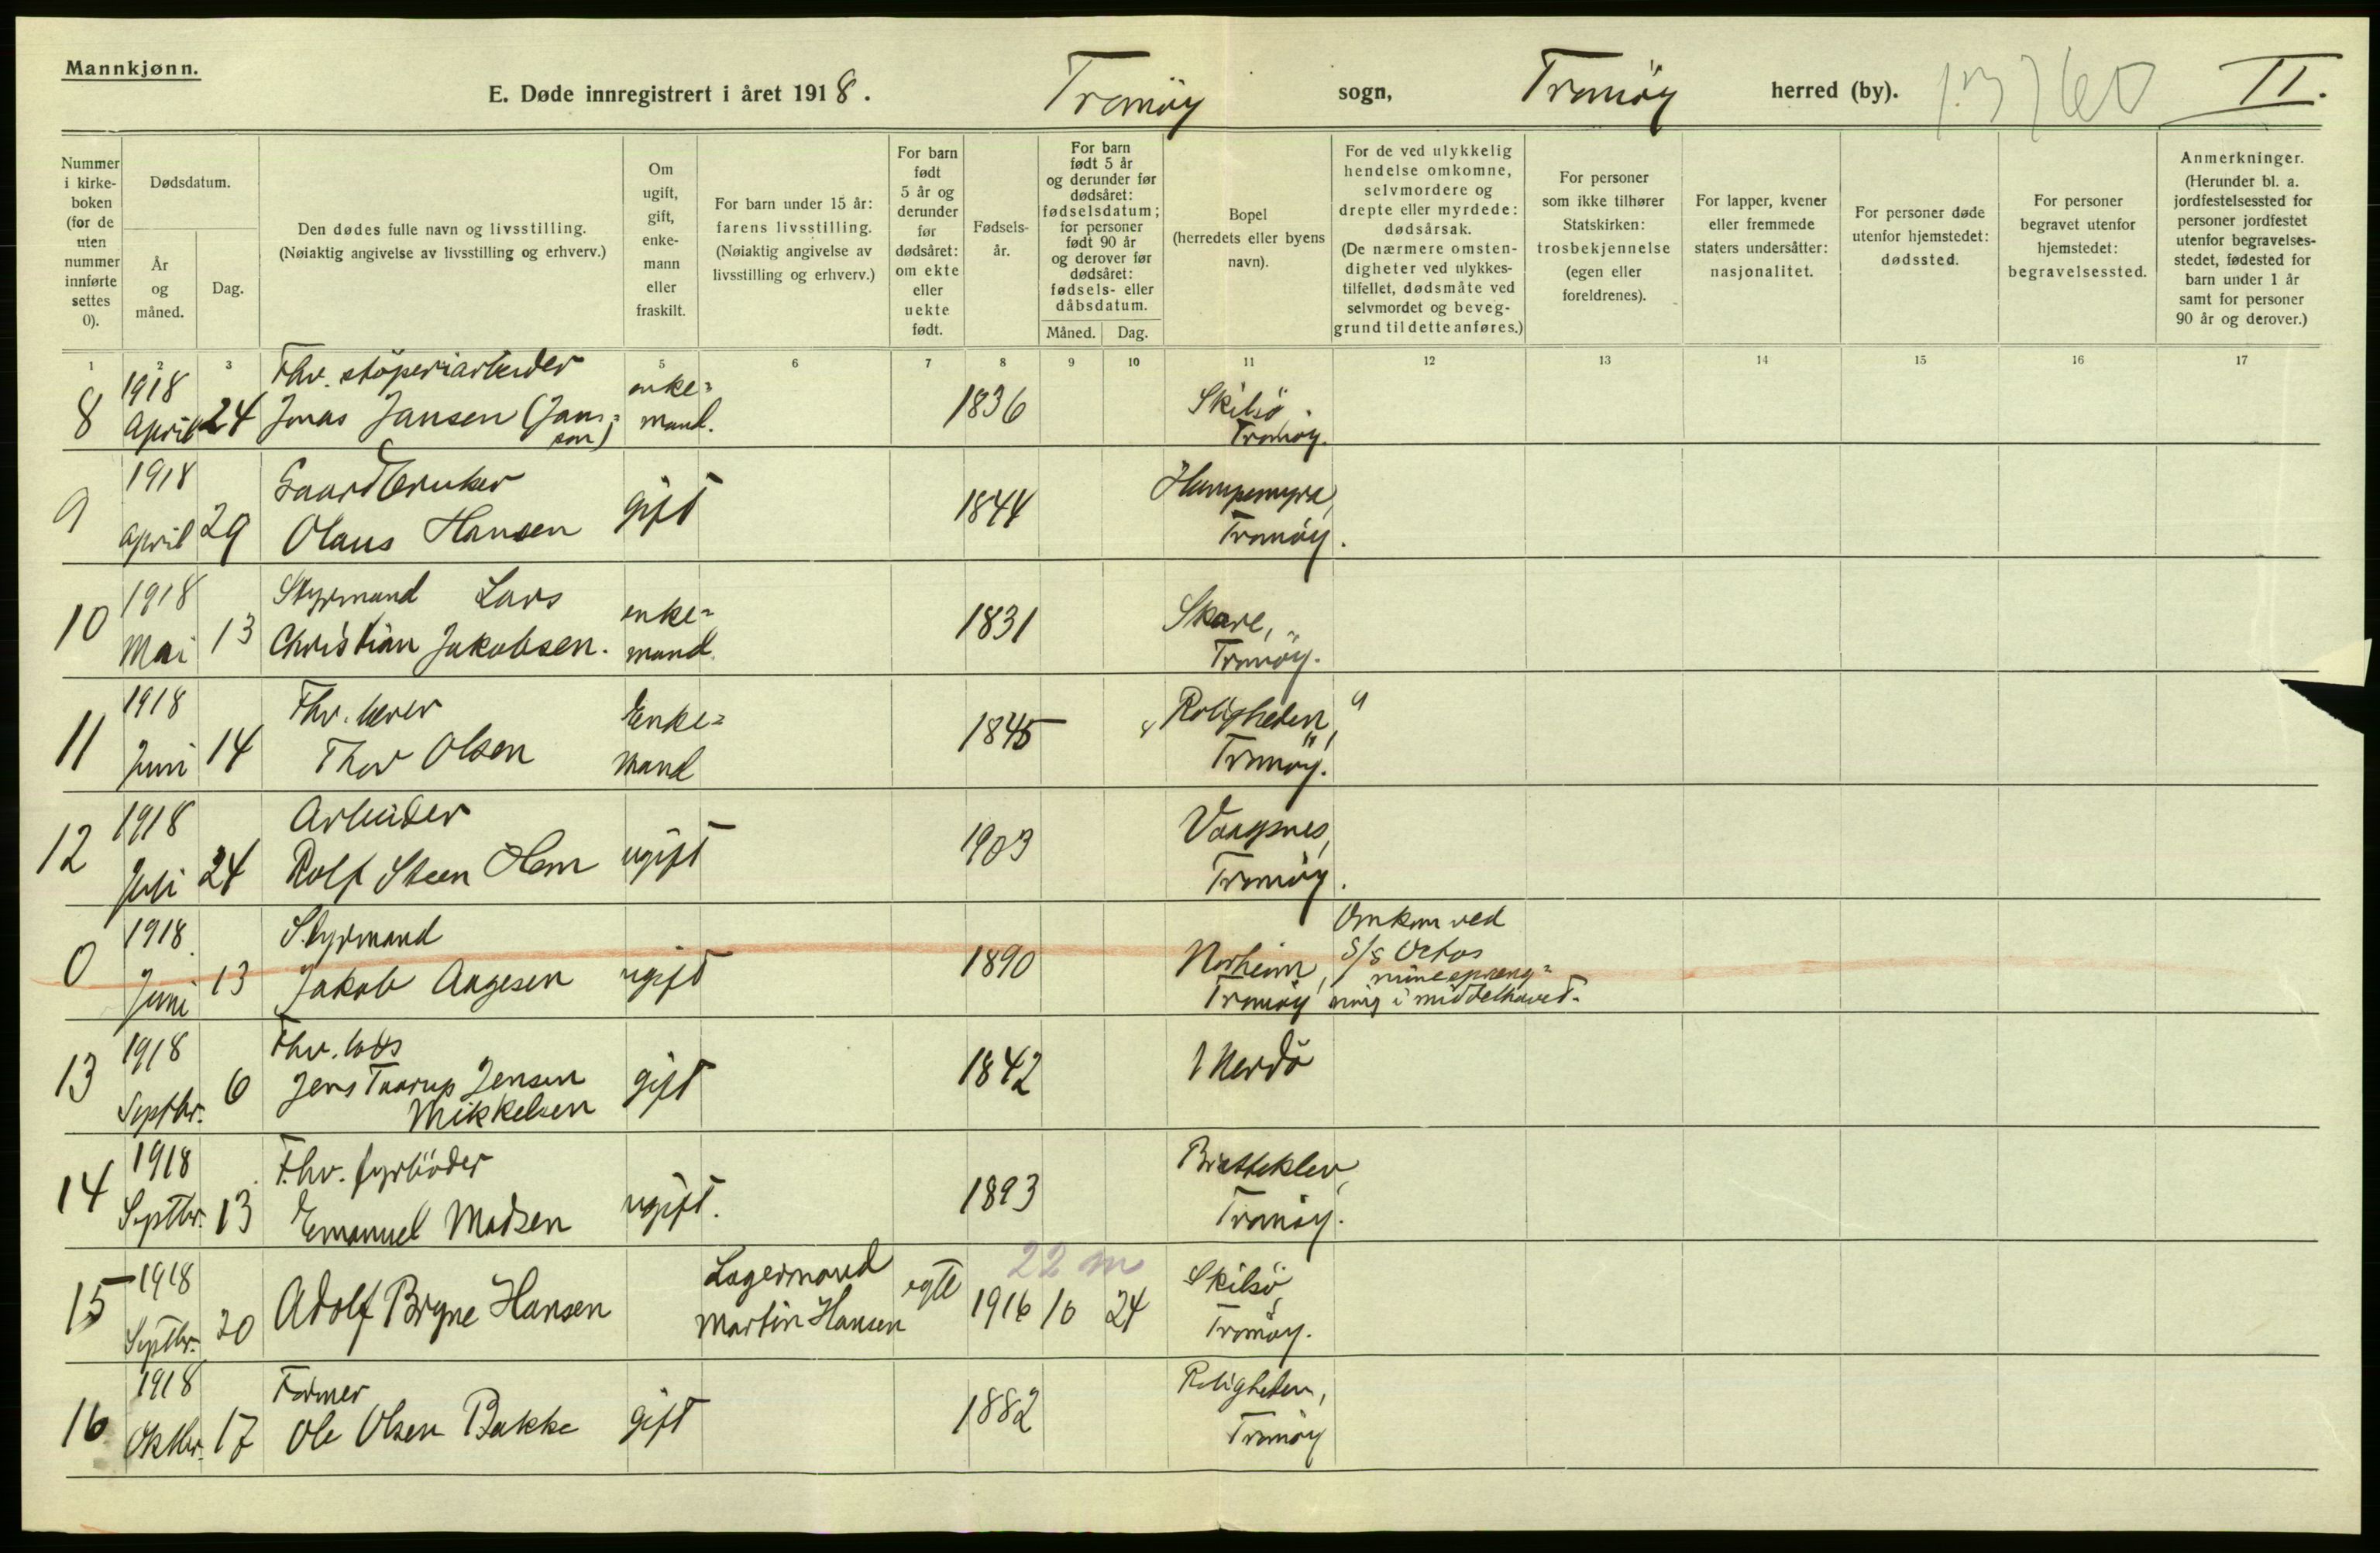 Mannkjønn.
E. Døde innregistrert i året 1918. Tromöy sogn, Tromöy herred (by). 13760 II.
Nummer i kirke-boken (for de uten nummer innførte settes 0).
Dødsdatum.
År og måned.
Dag.
Den dødes fulle navn og livsstilling.
(Nøiaktig angivelse av livsstilling og erhverv.)
Om ugift, gift, enke-mann eller fraskilt.
For barn under 15 år: farens livsstilling.
(Nøiaktig angivelse av livsstilling og erhverv.)
For barn født 5 år og derunder før dødsåret: om ekte eller uekte født.
Fødsels-år.
For barn født 5 år og derunder før dødsåret: fødselsdatum; for personer født 90 år og derover før dødsåret: fødsels- eller dåbsdatum.
Måned. Dag.
Bopel (herredets eller byens navn).
For de ved ulykkelig hendelse omkomne, selvmordere og drepte eller myrdede: dødsårsak.
(De nærmere omsten-digheter ved ulykkes-tilfellet, dødsmåte ved selvmordet og beveg-grund til dette anføres.)
For personer som ikke tilhører Statskirken: trosbekjennelse (egen eller foreldrenes).
For lapper, kvener eller fremmede staters undersåtter: nasjonalitet.
For personer døde utenfor hjemstedet: dødssted.
For personer begravet utenfor hjemstedet: begravelsessted.
Anmerkninger.
(Herunder bl. a. jordfestelsessted for personer jordfestet utenfor begravelses-stedet, fødested for barn under 1 år samt for personer 90 år og derover.)
1 2 3 5 6 7 8 9 10 11 12 13 14 15 16 17
8 1918 April 24 Fhv. støperiarbeider Jonas Jansen (Jans=son) enke=mand. 1836 Skilsö, Tromöy.
9 1918 April 29 Gaardbruker Olaus Hansen gift 1844 Hampemyra, Tromöy.
10 1918 Mai 13 Styrmand Lars Christian Jakobsen. enke=mand. 1831 Skare, Tromöy.
11 1918 Juni 14 Fhv. Thor Olsen Enke=mand 1845 "Roligheden", Tromöy.
12 1918 Juli 24 Arbeider Rolf Steen Hem ugift 1903 Vaagsnes, Tromöy.
0 1918. Juni 13 Styrmand Jakob Aagesen ugift 1890 Norheim, Tromöy Omkom ved S/S minespreng=ning i middelhavet.
13 1918 Septbr. 6 Fhv. lods Jens Taarup Jensen Mikkelsen gift 1842 Merdö
14 1918 Septbr. 13 F.hv. fyrböder Emanuel Madsen ugift. 1893 Bratteklev, Tromöy.
15 1918 Septbr. 20 Adolf Bryne Hansen Lagermand Martin Hansen egte 22 m 1916 10 24 Skilsö, Tromöy.
16 1918 Oktbr. 17 Farmer Ole Olsen Bakke gift 1882 Roligheden, Tromöy